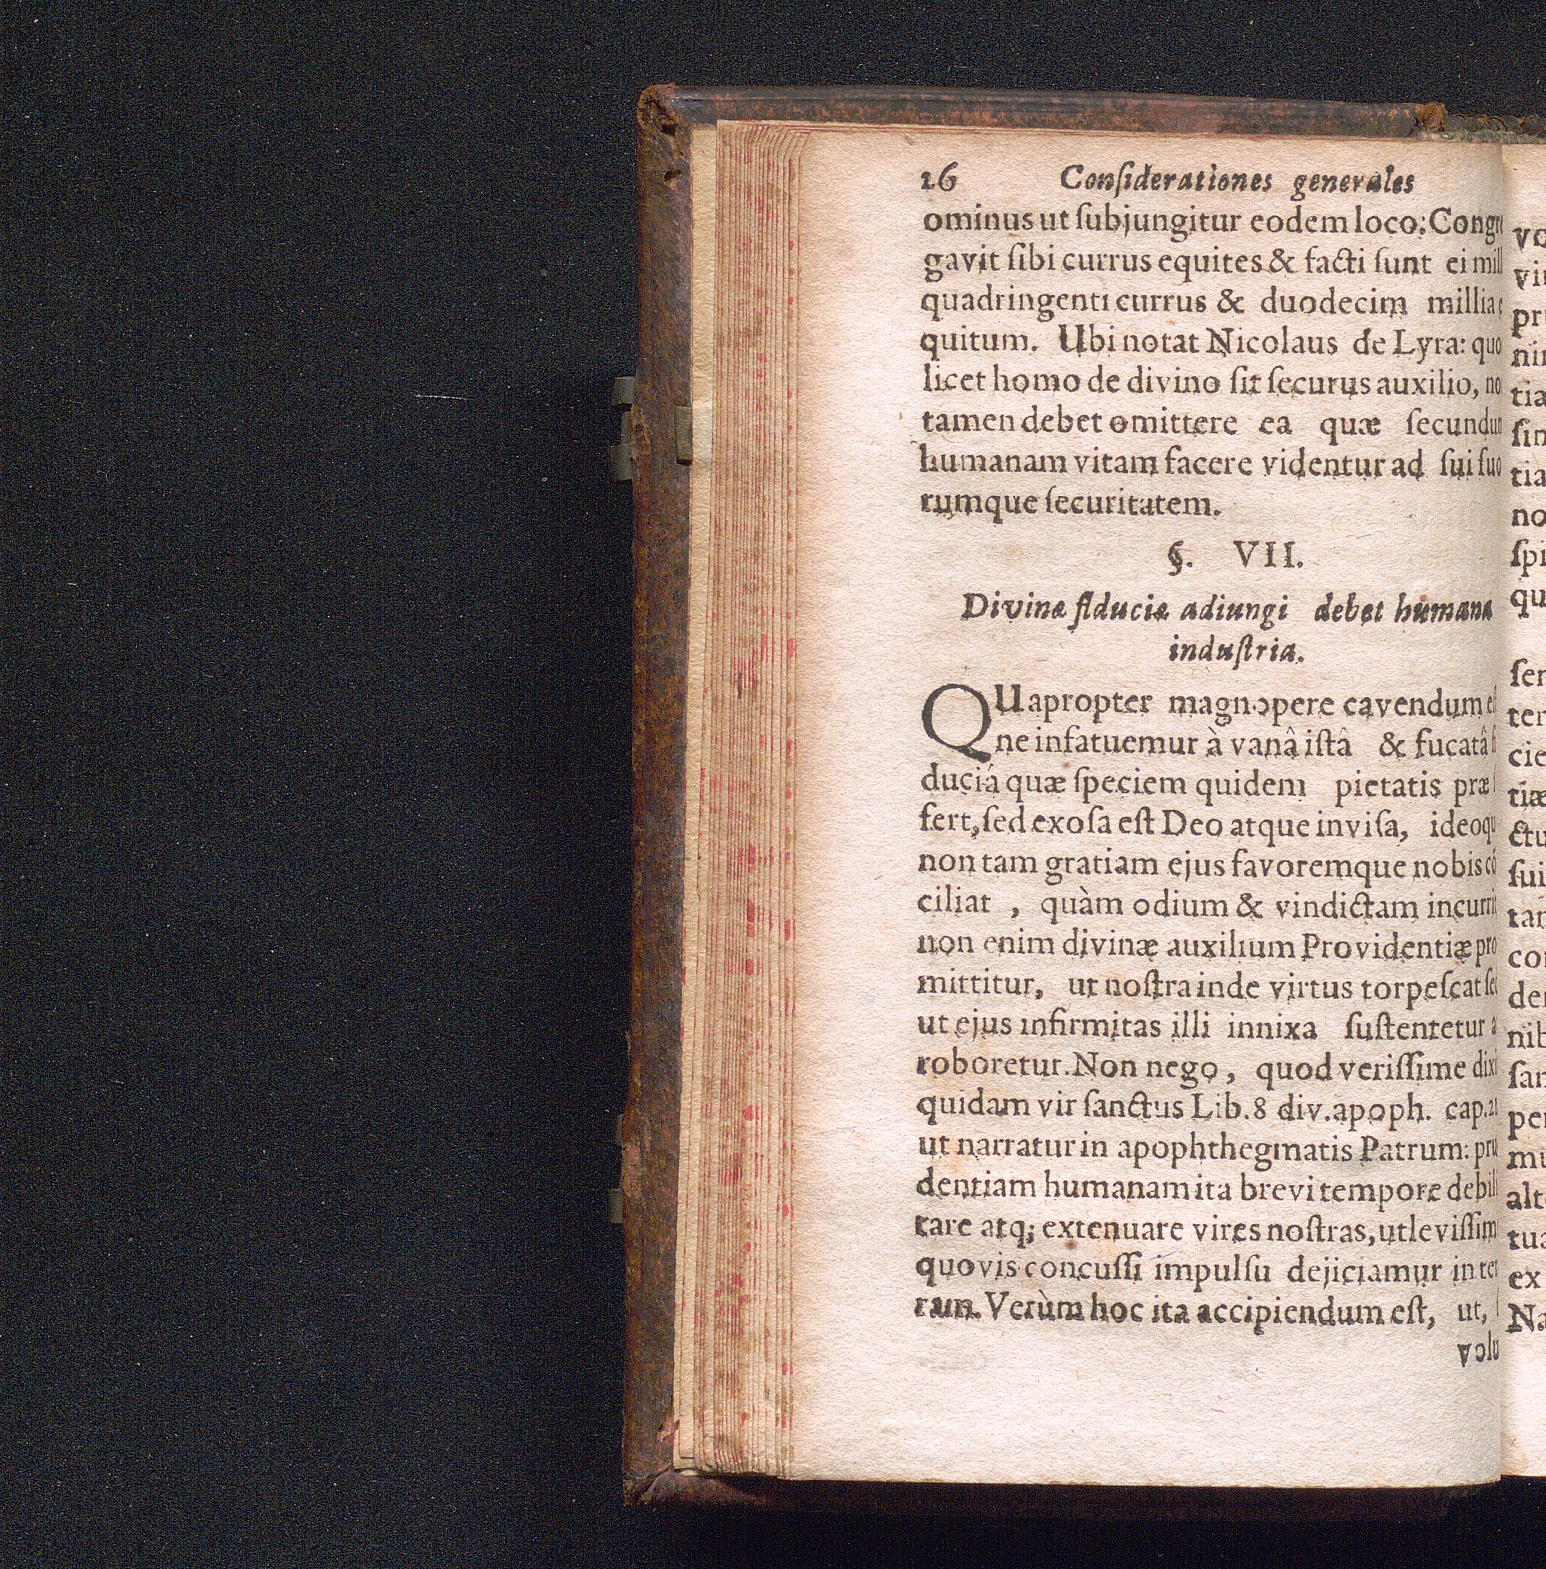 16 Conſiderationes generales
ominus ut ſubjungitur eodem loco: Congre
gavit ſibi currus equites & facti ſunt ei mill
quadringenti currus & duodecim millia e
quitum. Ubi notat Nicolaus de Lyra: quo
licet homo de divino ſit ſecurus auxilio, no
tamen debet omittere ea quæ ſecundum
humanam vitam facere videntur ad ſui ſuo
rumque ſecuritatem.
§. VII.
Divinæ fiduciæ adiungi debet humana
induſtria.
QUapropter magnopere cavendum eſt
ne infatuemur à vanâ iſtâ & fucatâ fi
duciá quæ ſpeciem quidem pietatis præ ſ
fert, ſed exoſa eſt Deo atque inviſa, ideoqu
non tam gratiam ejus favoremque nobis cō
ciliat , quàm odium & vindictam incurrit
non enim divinæ auxilium Providentiæ pro
mittitur, ut noſtra inde virtus torpeſcat ſed
ut ejus infirmitas illi innixa ſuſtentetur a
roboretur. Non nego, quod veriſſime dixi
quidam vir ſanctus Lib. 8 div. apoph. cap. 21
ut narratur in apophthegmatis Patrum: pru
dentiam humanam ita brevi tempore debili
tare atq; extenuare vires noſtras, ut leviſſim
quovis concuſſi impulſu dejiciamur in ter
ram. Verùm hoc ita accipiendum eſt, ut,
volu
vo
vi
pr
nin
tia
ſin
tia
no
ſpi
qu
ſer
ter
cie
tiæ
ctu
ſui
tan
con
der
nib
ſan
per
mu
alt
tua
ex
Na